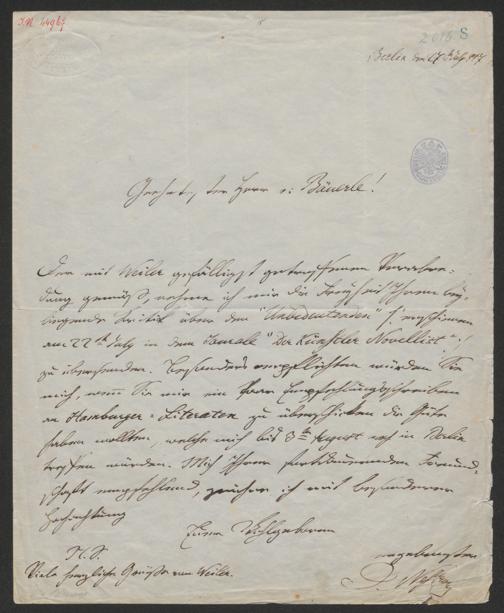 I.N. 44967
2015 8
Berlin den 17 July 847
Geehrtester Herr v: Bäuerle!
Der mit Weiler gefälligst getroffenen Verabre-
dung gemäß, nehme ich mir die Freiheit Ihnen bey-
liegende Kritik über den "Unbedeutenden" /: erschienen
am 22ten July in dem Journale "Der Künstler Novellist":/
zu übersenden. Besonders verpflichten würden Sie
mich, wenn Sie mir ein Paar Empfehlungsschreiben
an Hamburger-Literaten zu überschicken die Güte
haben wollten, welche mich bis 3ten August noch in Berlin
treffen würden. Mich Ihrem fortdauernden
empfehlend, zeichne ich mit besonderer
Hochachtung
Euer Wohlgeboren
N.S.
Viele herzliche Grüße von Weiler.
ergebenster